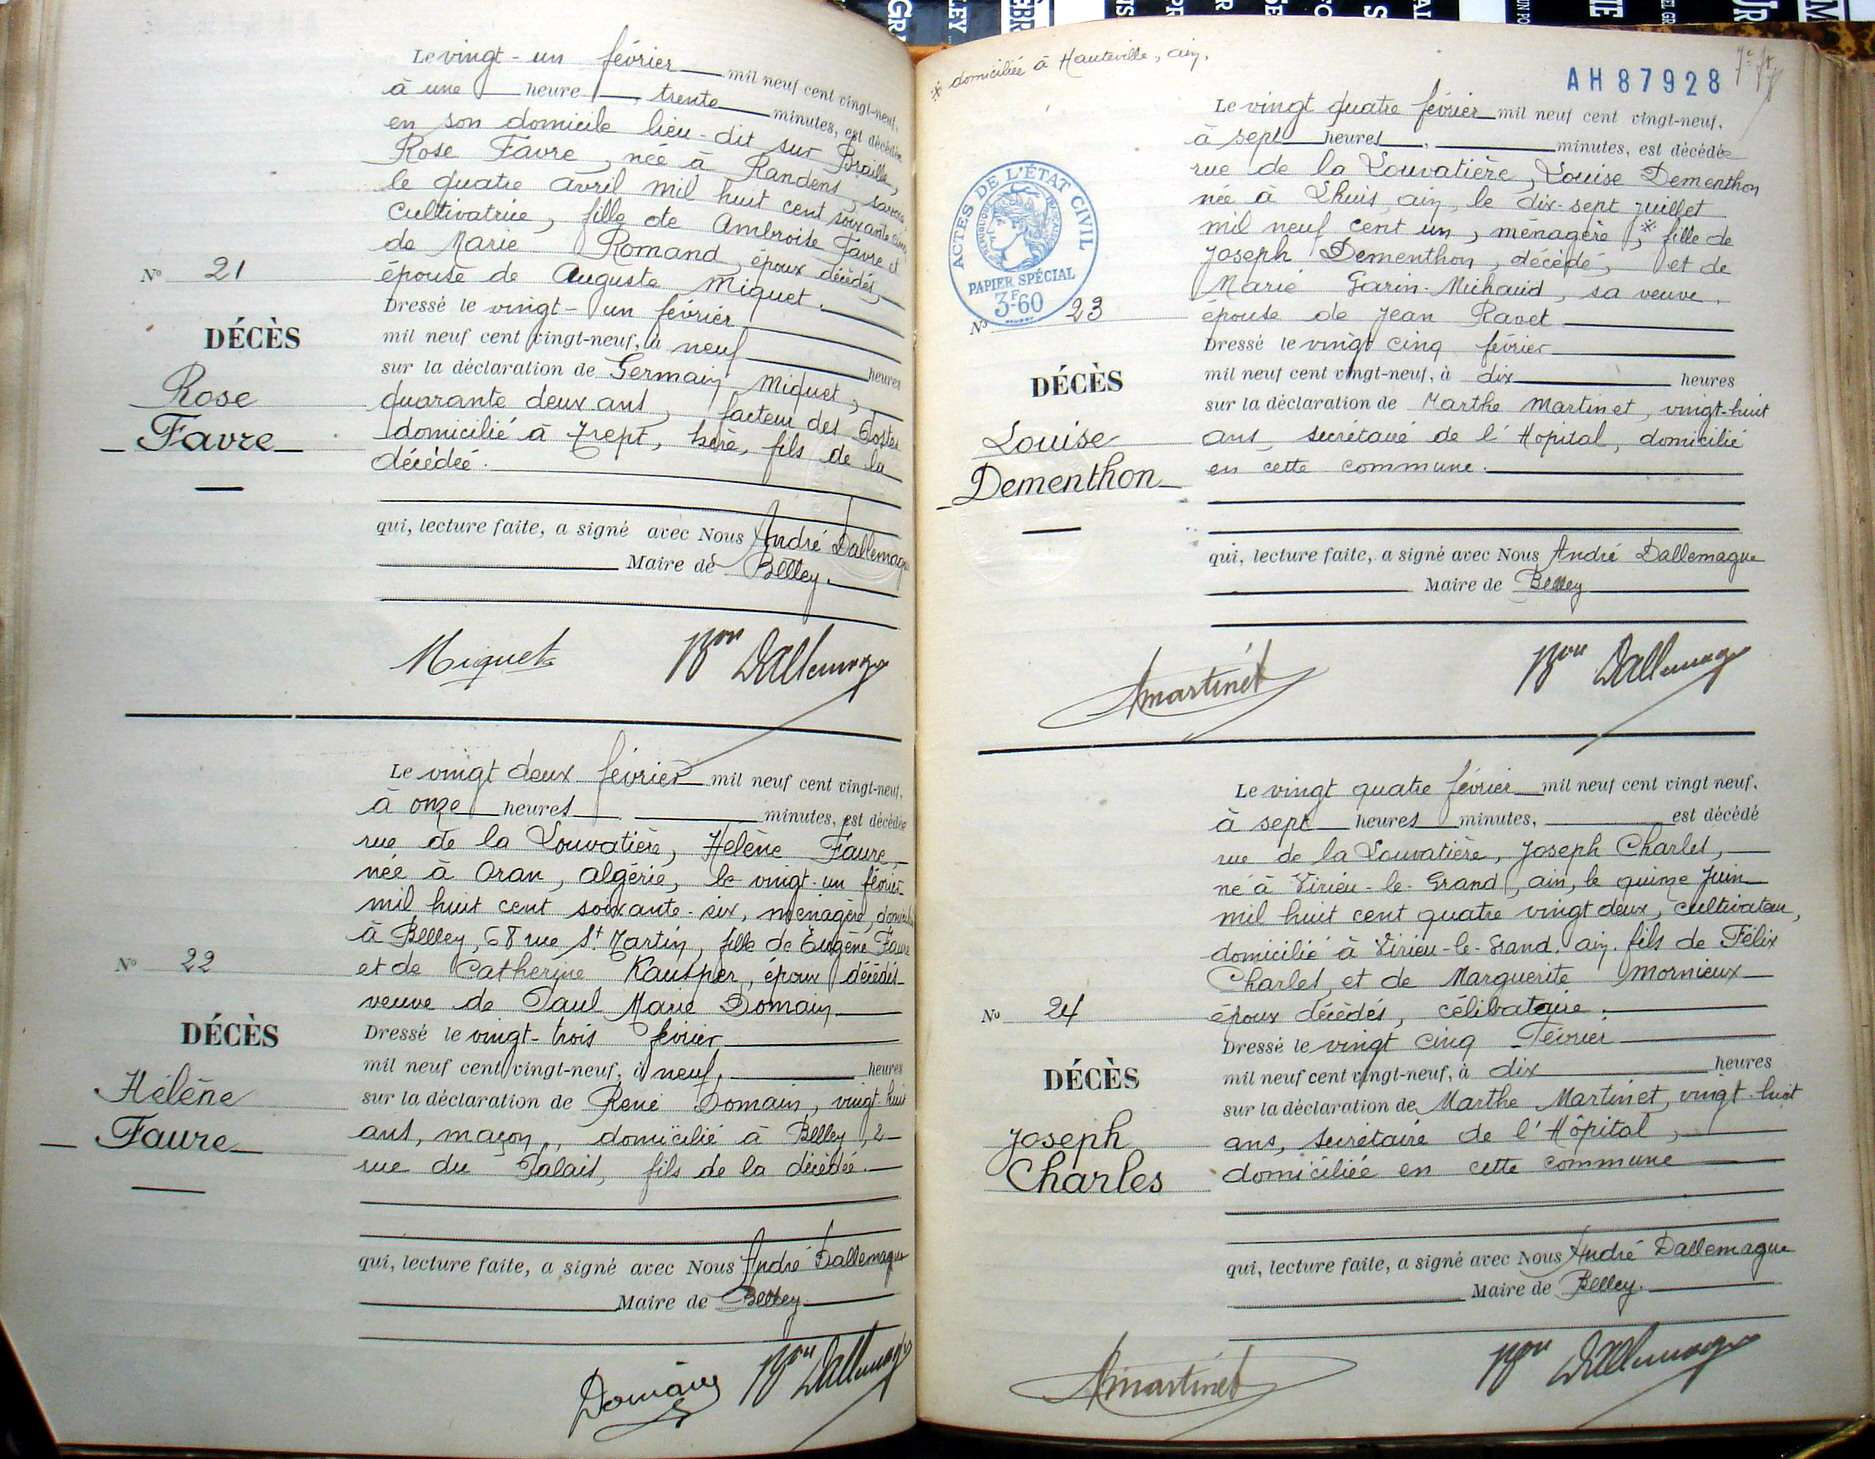 Le vingt-un février mil neuf cent vingt-neuf,
à une heure, trente minutes, est décédée
en son domicile lieu-dit sur Braille,
Rose Favre, née à Randens, savoie
le quatre avril mil huit cent soixante
cultivatrice, fille de Ambroise Favre et
de Marie Romand, époux décédés,
épouse de Auguste Miquet.
Dressé le vingt-un février
mil neuf cent vingt-neuf, à neuf heures
sur la déclaration de Germain Miquet,
quarante deux ans, facteur des Postes
domicilié à Trept, Isère, fils de la
décédée.
qui, lecture faite, a signé avec Nous André Dallemagne
Maire de Belley.
Miquet Bon Dallemagne
No 21
DÉCÈS
Rose
Favre
Le vingt deux février mil neuf cent vingt-neuf,
à onze heures minutes, est décédée
rue de la Louvatière, Hélène Faure,
née à Oran, algérie, le vingt-un février
mil huit cent soixante-six, ménagère,
à Belley, 68 rue St Martin, fille de Eugène Faure
et de Catherine Kausper, époux décédés
veuve de Paul Marie Domain
Dressé le vingt-trois février
mil neuf cent vingt-neuf, à neuf, heures
sur la déclaration de René Domain, vingt-huit
ans, maçon, domicilié à Belley, 2
rue du Palais, fils de la décédée.
qui, lecture faite, a signé avec Nous André Dallemagne
Maire de Belley
Domain Bon Dallemagne
No 22
DÉCÈS
Hélène
Faure
* domiciliée à Hauteville, ain,
AH87928
Le vingt quatre février mil neuf cent vingt-neuf,
à sept heures, minutes, est décédée
rue de la Louvatière, Louise Dementhon
née à Lhuis, ain, le dix-sept juillet
mil neuf cent un, ménagère,* fille de
Joseph Dementhon, décédé, et de
Marie Garin-Michaud, sa veuve,
épouse de Jean Ravet
Dressé le vingt cinq février
mil neuf cent vingt-neuf, à dix heures
sur la déclaration de Marthe Martinet, vingt-huit
ans, secrétaire de l'Hopital, domicilié
en cette commune.
qui, lecture faite, a signé avec Nous André Dallemagne
Maire de Belley
Martinet Bon Dallemagne
ACTES DE L'ÉTAT CIVIL
PAPIER SPÉCIAL
3F60
No 23
DÉCÈS
Louise
Dementhon
Le vingt quatre février mil neuf cent vingt neuf,
à sept heures minutes, est décédé
rue de la Louvatière, Joseph Charles,
né à Virieu-le-Grand, ain, le quinze juin
mil huit cent quatre vingt deux, cultivateur,
domicilié à Virieu-le-Grand, ain, fils de Félix
Charles, et de Marguerite Mornieux
époux décédés, célibataire.
Dressé le vingt cinq Février
mil neuf cent vingt-neuf, à dix heures
sur la déclaration de Marthe Martinet, vingt-huit
ans, secrétaire de l'Hôpital,
domiciliée en cette commune
qui, lecture faite, a signé avec Nous André Dallemagne
Maire de Belley.
Martinet Bon Dallemagne
No 24
DÉCÈS
Joseph
Charles